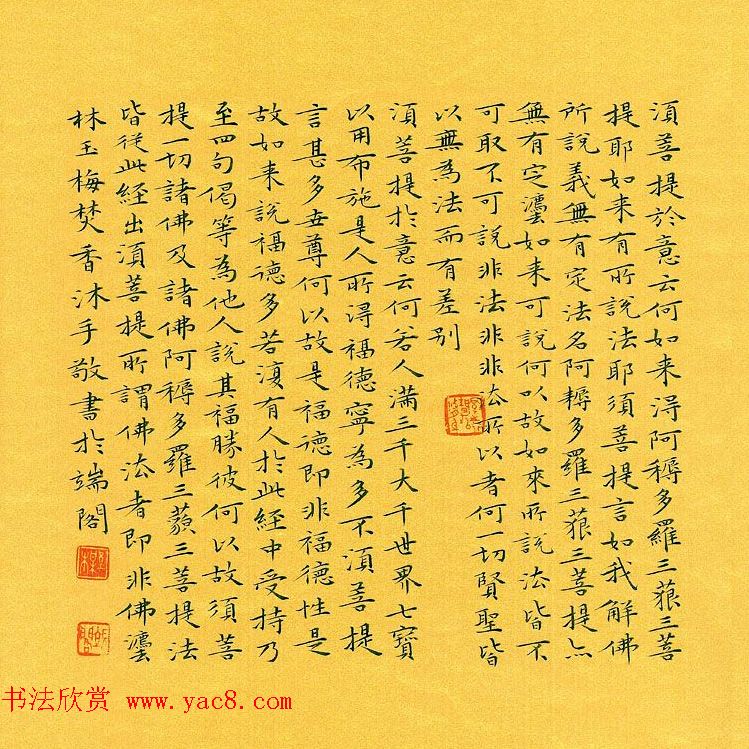 須菩提於意云何如来淂阿耨多羅三藐三菩
提耶如来有所說法耶須菩提言如我解佛
所說義無有定法名阿耨多羅三藐三菩提亦
無有定灋如来可說何以故如來所說法皆不
可取不可說非法非非法所以者何一切賢聖皆
以無為法而有差別
須菩提於意云何若人滿三千大千世界七寳
以用布施是人所淂福德寧為多不須菩提
言甚多世尊何以故是福德即非福德性是
故如来說福德多若復有人於此経中受持乃
至四句偈等為他人說其福勝彼何以故須菩
提一切諸佛及諸佛阿耨多羅三藐三菩提法
皆從此経出須菩提所謂佛法者即非佛灋
林玉梅焚香沐手敬書於端閣
书法欣赏 www.yac8.com